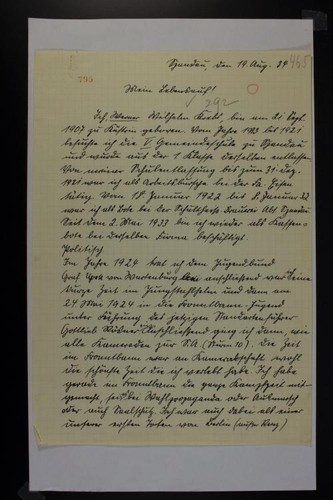 Spandau, den 19. Aug. 34
465
793
Mein Lebenslauf!
Ich, Werner Wilhelm Krebs, bin am 21. Sept.
1907 zu Küstrin geboren. Vom Jahre 1913 bis 1921
besuchte ich die V Gemeindeschule zu Spandau
und wurde aus der 1 Klasse derselben entlassen.
Von meiner Schulentlassung bis zum 31. Dez.
1921 war ich als Arbeitsbursche bei der Fa.
tätig. Vom 15 Januar 1922 bis Januar
war ich als Bote bei der Abt. Spandau.
Seit dem 2. Mai 1933 bin ich wieder als
bote bei derselben Firma beschäftigt.
Politisch
Im Jahre 1924 trat ich dem Jugendbund
Graf York von Wartenburg bei anschließend war ich eine
kurze Zeit im Jungstahlhelm und dann am
24 Mai 1924 in die Frontbann-Jugend
unter Führung des jetzigen Standartenführer
Gottlieb Rösner. Anschließend ging ich dann, wie
alle Kameraden zur S.A. (Sturm 10). Die Zeit
im Frontbann war an Kameradschaft, wohl
die schönste Zeit die ich verlebt habe. Ich habe
gerade im Frontbann die ganze Kampfzeit mit
gemacht, sei es bei Wahlpropaganda oder Aufmarsch
oder auch Saalschutz. Ich war auch dabei als einer
unserer ersten Toten von Berlin